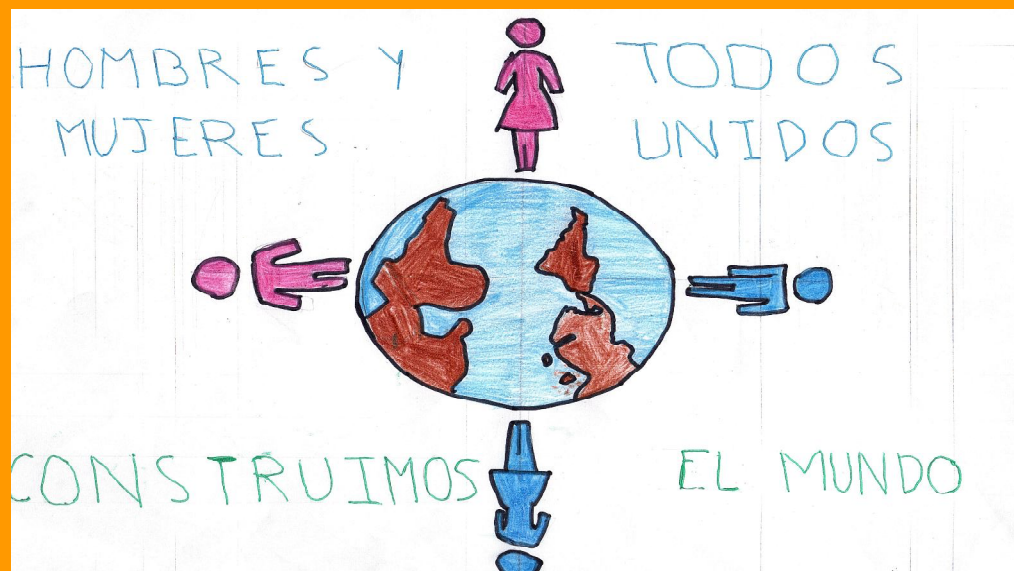 HOMBRES Y
MUJERES
TODOS
UNIDOS
CONSTRUIMOS
EL MUNDO